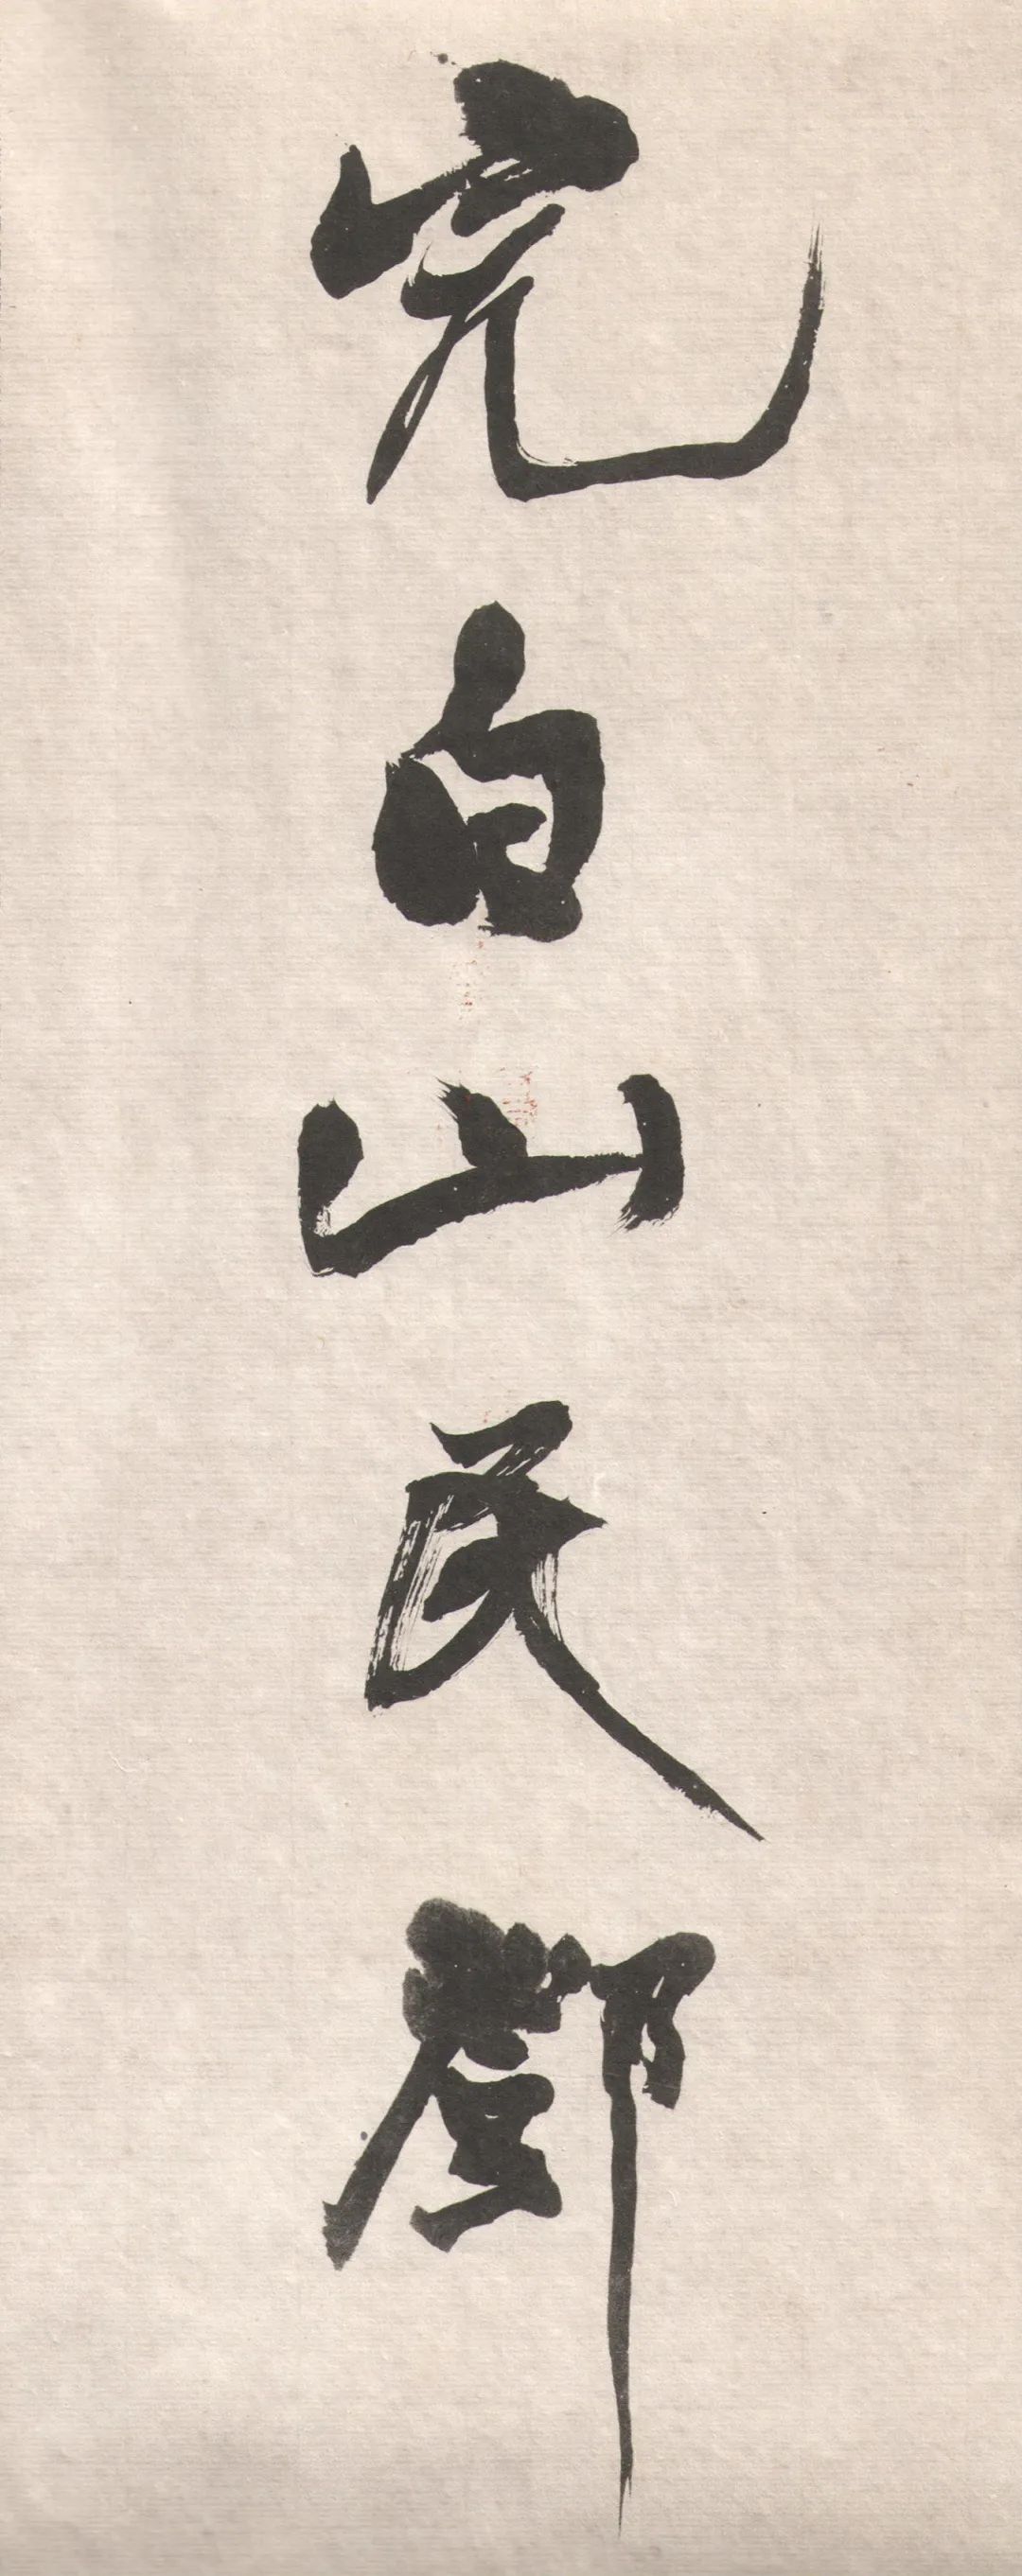 完白山民鄧